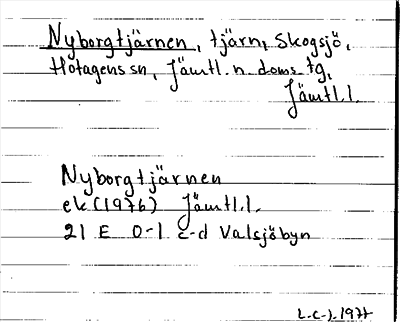 Nyborgtjärnen, tjärn, Skogsjö,
Hotagens sn, Jämtl. n. doms. tg,
Jämtl. l.
Nyborgtjärnen
ek (1976) Jämtl. l.
21 E 0-1 c-d Valsjöbyn
1977